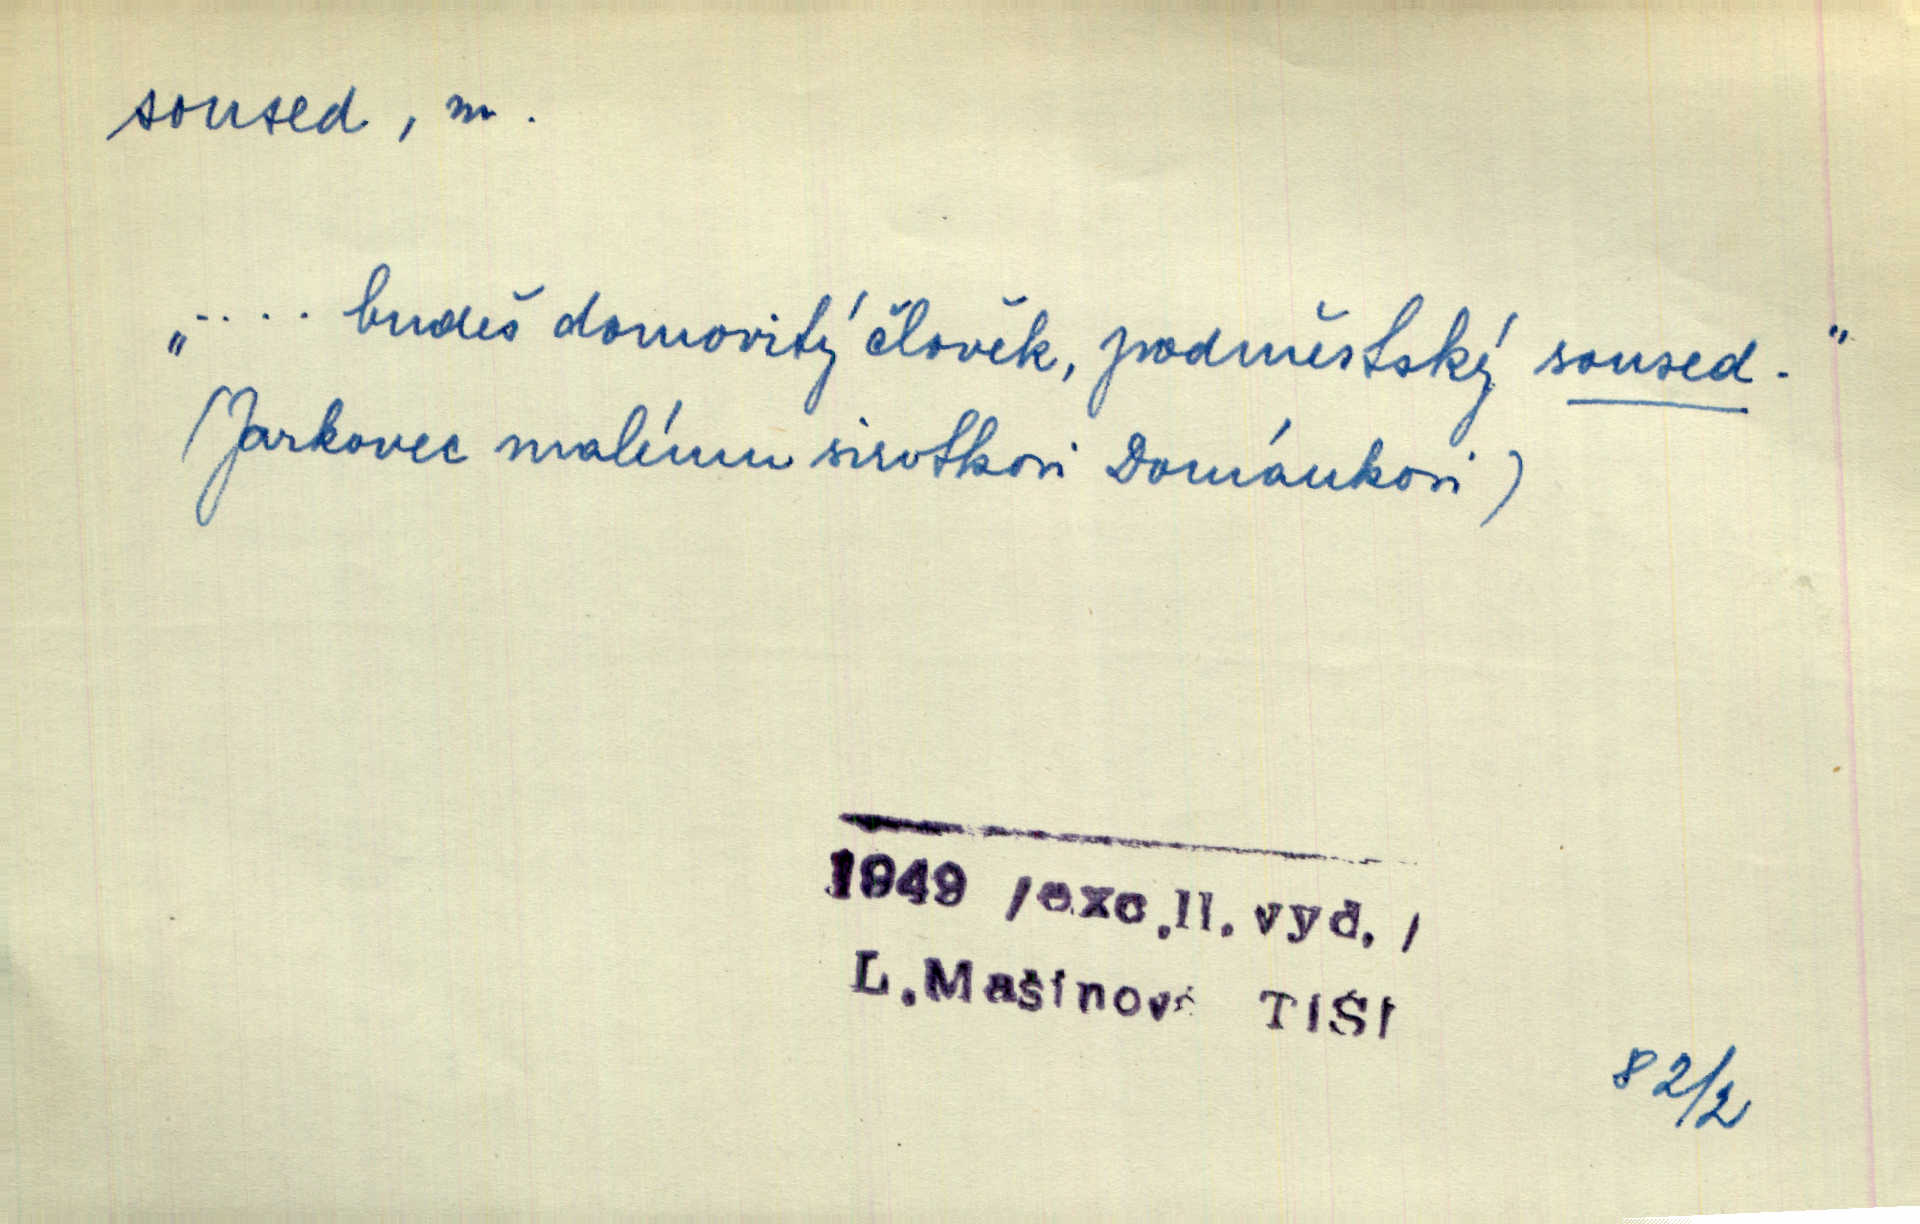 soused, m.
„.... budeš domovitý člověk, podměstský soused."
(Jarkovec malému sirotkovi Domáňkovi)
1949 /exc.II. vyd. /
L.Mašínová TIŠI
82/2